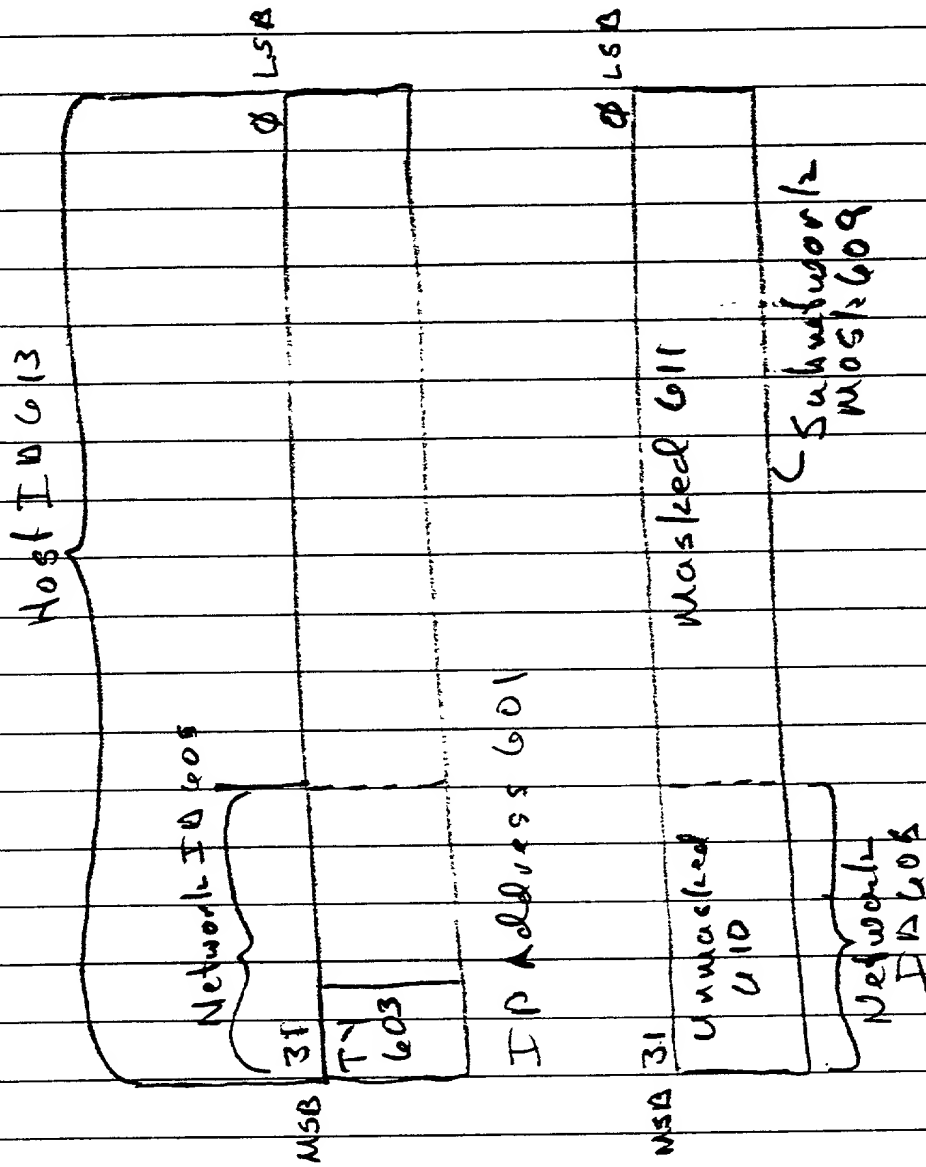 Host ID 613
Network ID 605
MSB 31 Ø LSB
TY
603
IP Address 601
MSB 31 Ø LSB
Unmasked
610
Masked 611
Network
ID 608
Subnetwork
Mask 609